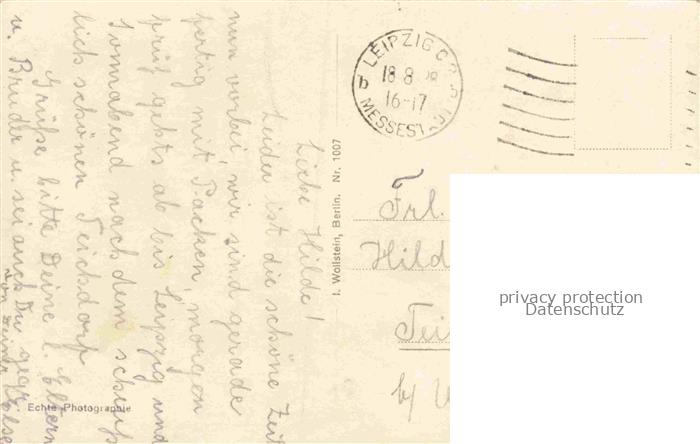 Liebe Hilde!
Leider ist die schöne Zeit
nun vorbei, wir sind gerade
fertig mit Packen, morgen
früh gehts ab bis Leipzig und
Sonnabend nach dem
schönen Teichdorf
Grüße bitte Deine l. Eltern
u. Bruder u. sei auch Du gegr.
von Deiner
LEIPZIG C 2
18 8 28
16-17
b
MESSEST
I. Wollstein, Berlin. Nr. 1007
Frl.
Hild
Tei
b/
privacy protection
Datenschutz
Echte Photographie